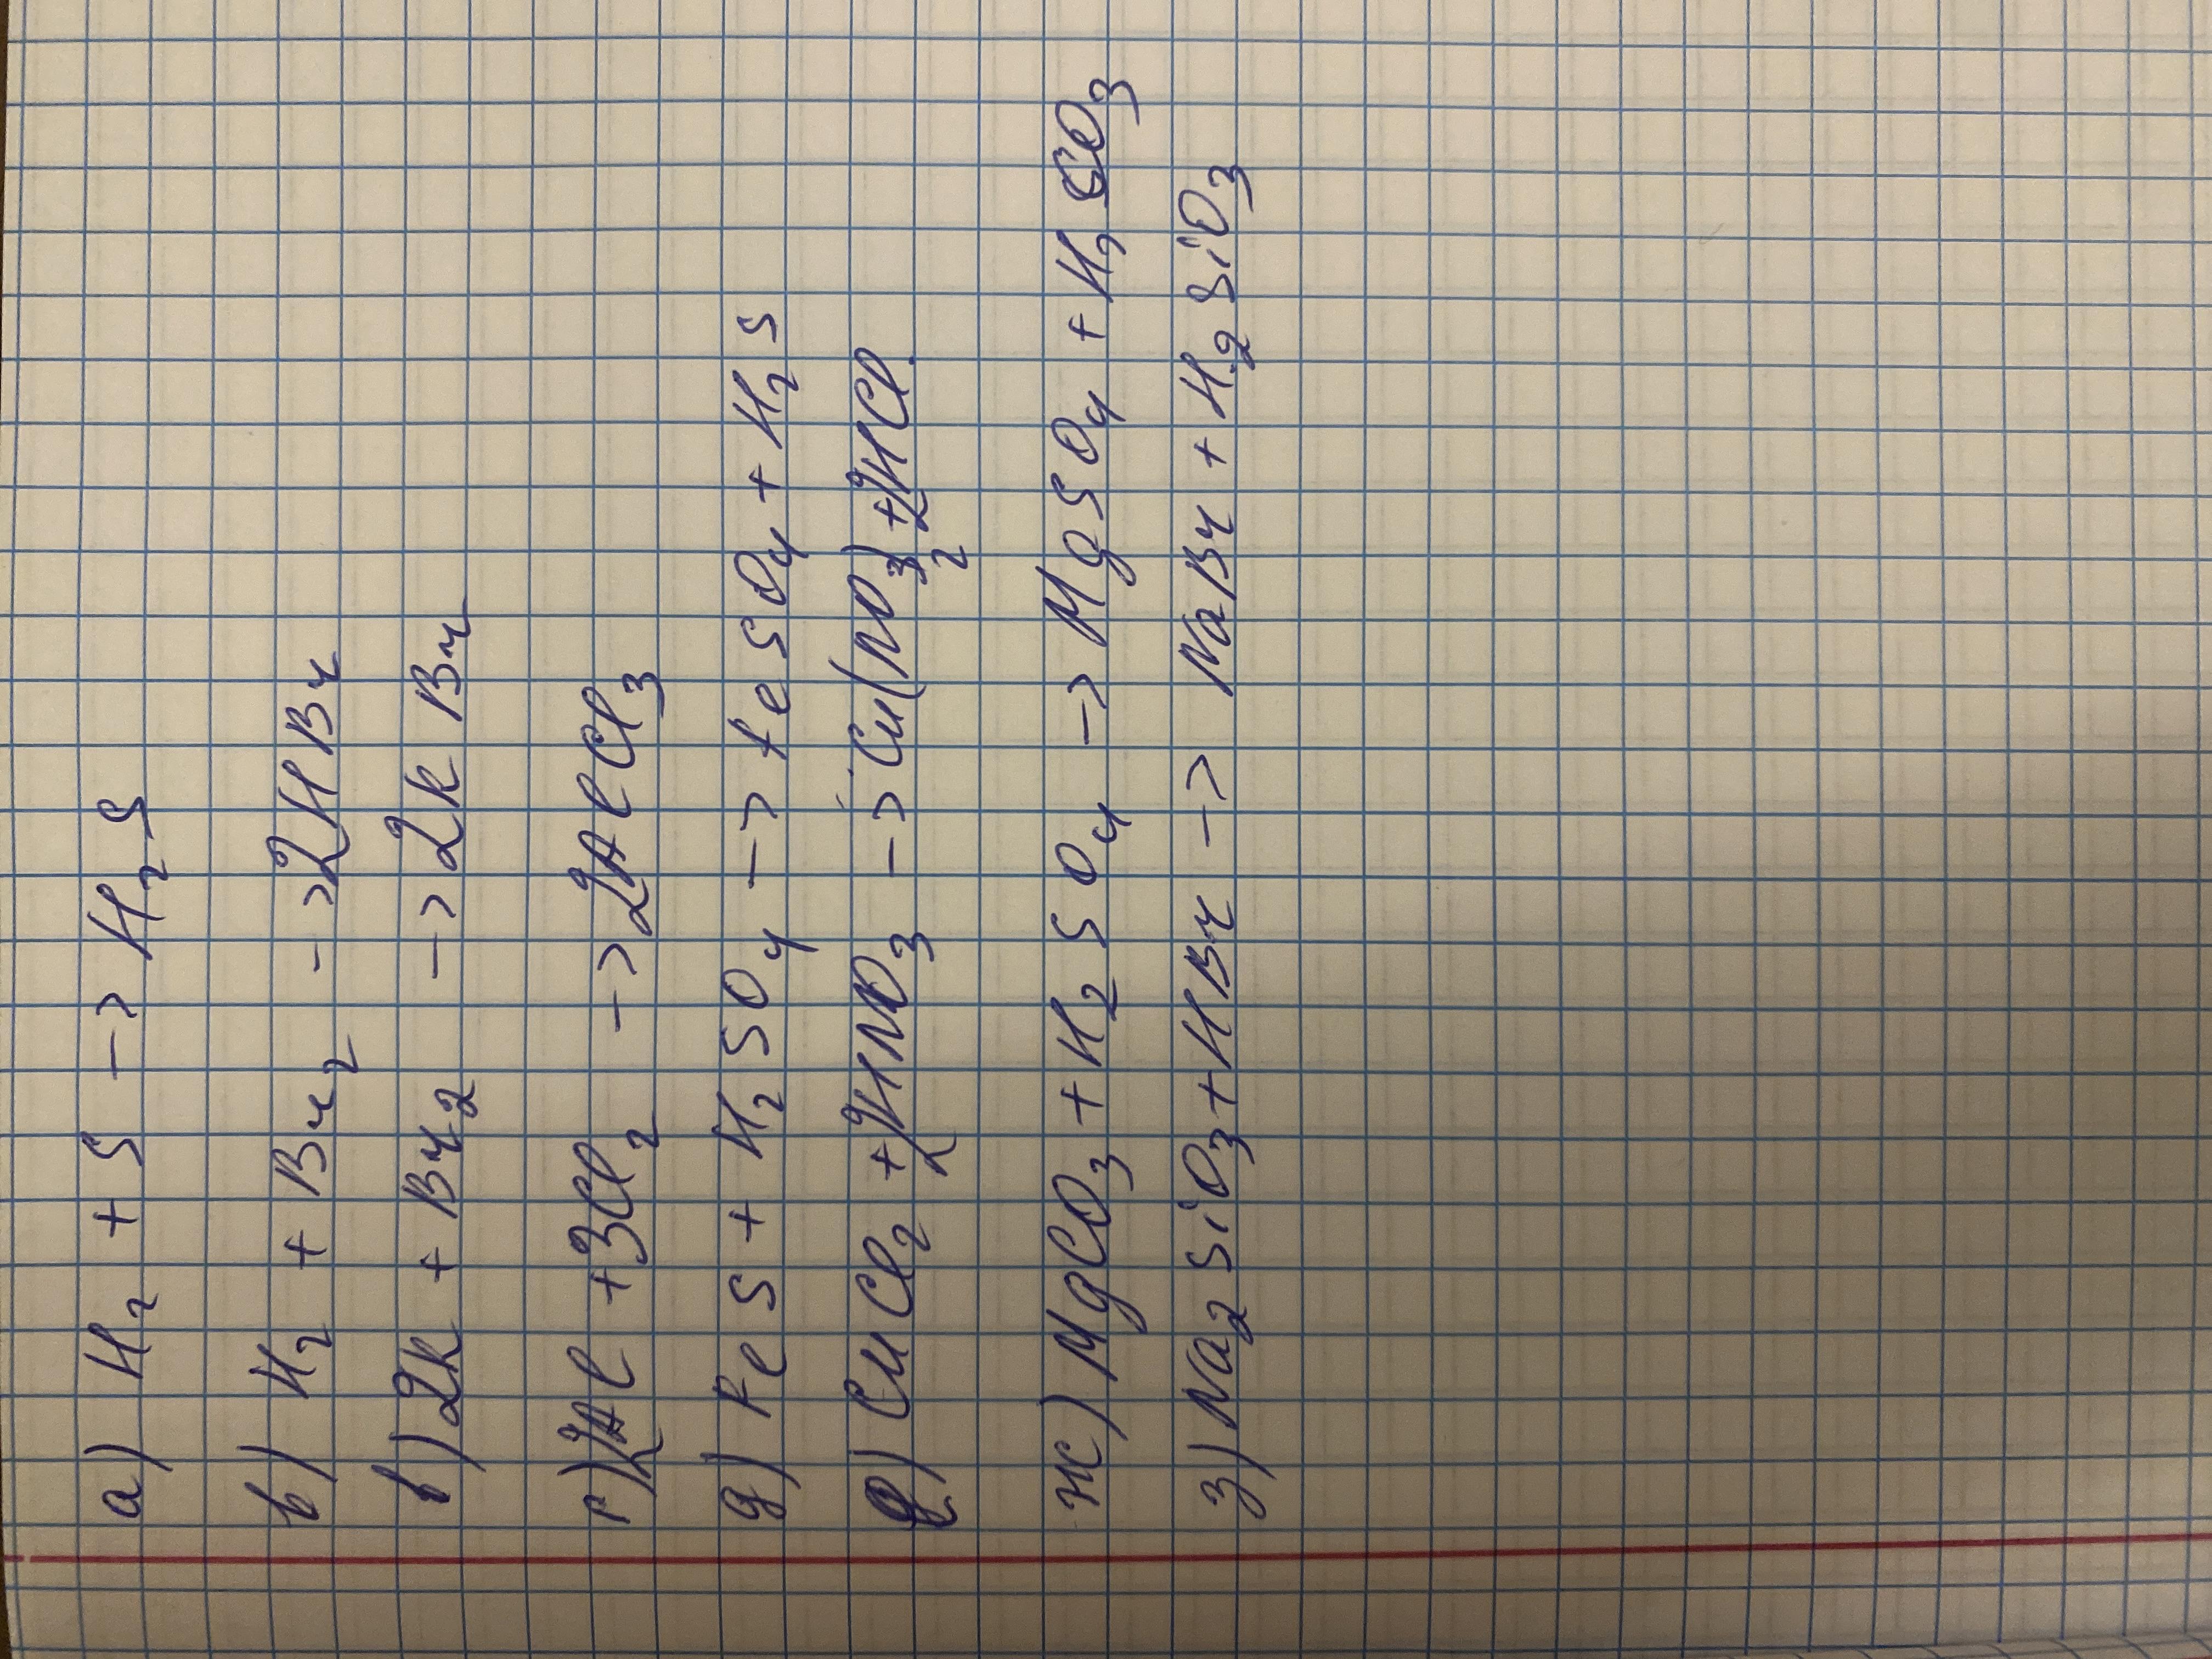 а) H₂ + S -> H₂S
в) H₂ + Br₂ -> 2HBr
в) 2K + Br₂ -> 2KBr
г) 2Al + 3Cl₂ -> 2AlCl₃
д) FeS + H₂SO₄ -> FeSO₄ + H₂S
е) CuCl₂ + 2HNO₃ -> Cu(NO₃)₂ + 2HCl
ж) MgCO₃ + H₂SO₄ -> MgSO₄ + H₂CO₃
з) Na₂SiO₃ + HBr -> NaBr + H₂SiO₃